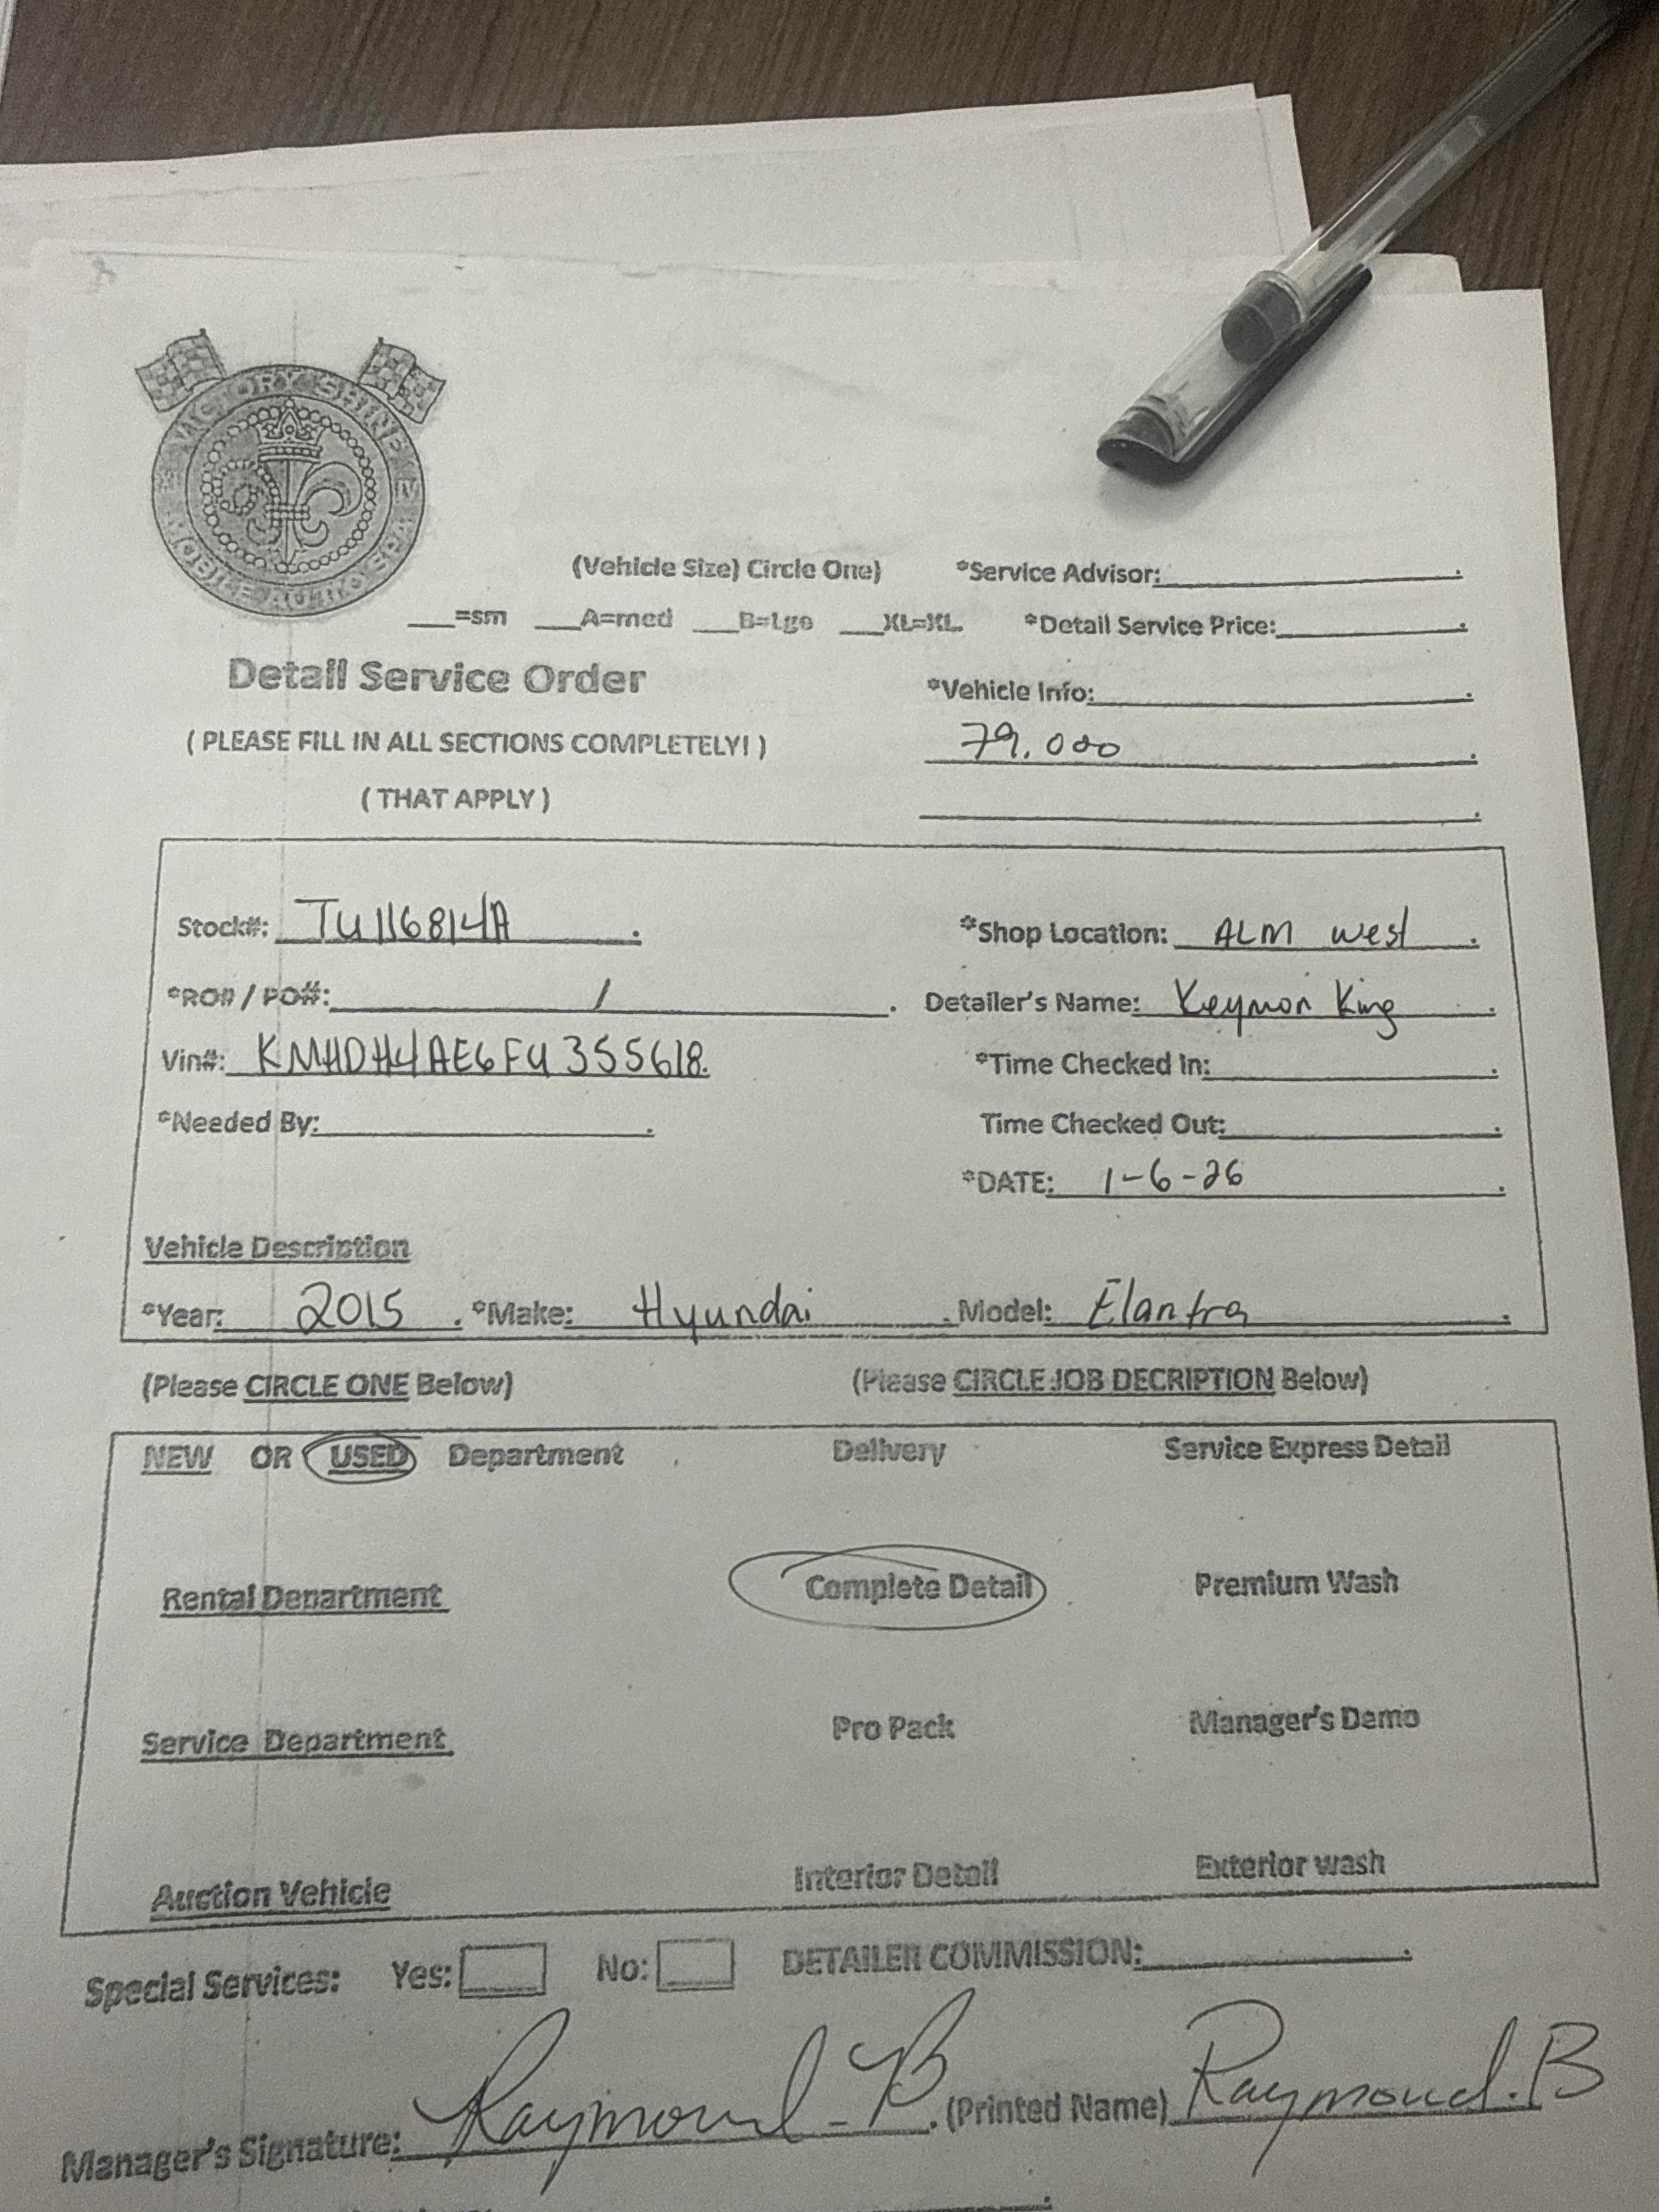 VICTORY SHINE
MOBILE AUTO SPA
(Vehicle Size) Circle One) *Service Advisor:____.
___=sm ___A=med ___B=Lge ___XL=XL. *Detail Service Price:____.
Detail Service Order
*Vehicle Info:____.
( PLEASE FILL IN ALL SECTIONS COMPLETELY! ) 79,000.
( THAT APPLY )
Stock#: TU116814A. *Shop Location: ALM west.
*RO# / PO#: /. Detailer's Name: Keymon King.
Vin#: KMHDH4AE6FU355618. *Time Checked In:____.
*Needed By:____. Time Checked Out:____.
*DATE: 1-6-26.
Vehicle Description
*Year: 2015. *Make: Hyundai. Model: Elantra.
(Please CIRCLE ONE Below) (Please CIRCLE JOB DECRIPTION Below)
NEW OR USED Department Delivery Service Express Detail
Rental Department Complete Detail Premium Wash
Service Department Pro Pack Manager's Demo
Auction Vehicle Interior Detail Exterior wash
Special Services: Yes: No: DETAILER COMMISSION:____.
Manager's Signature: Raymond-B. (Printed Name) Raymond.B